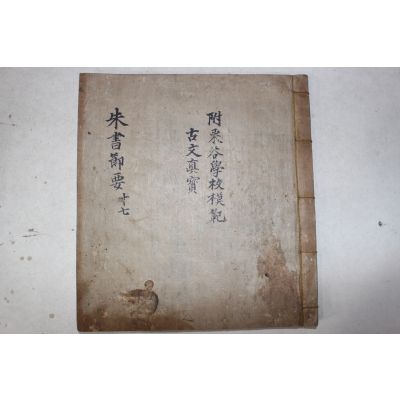 附栗谷學校模範
古文眞寶
朱書節要 十七